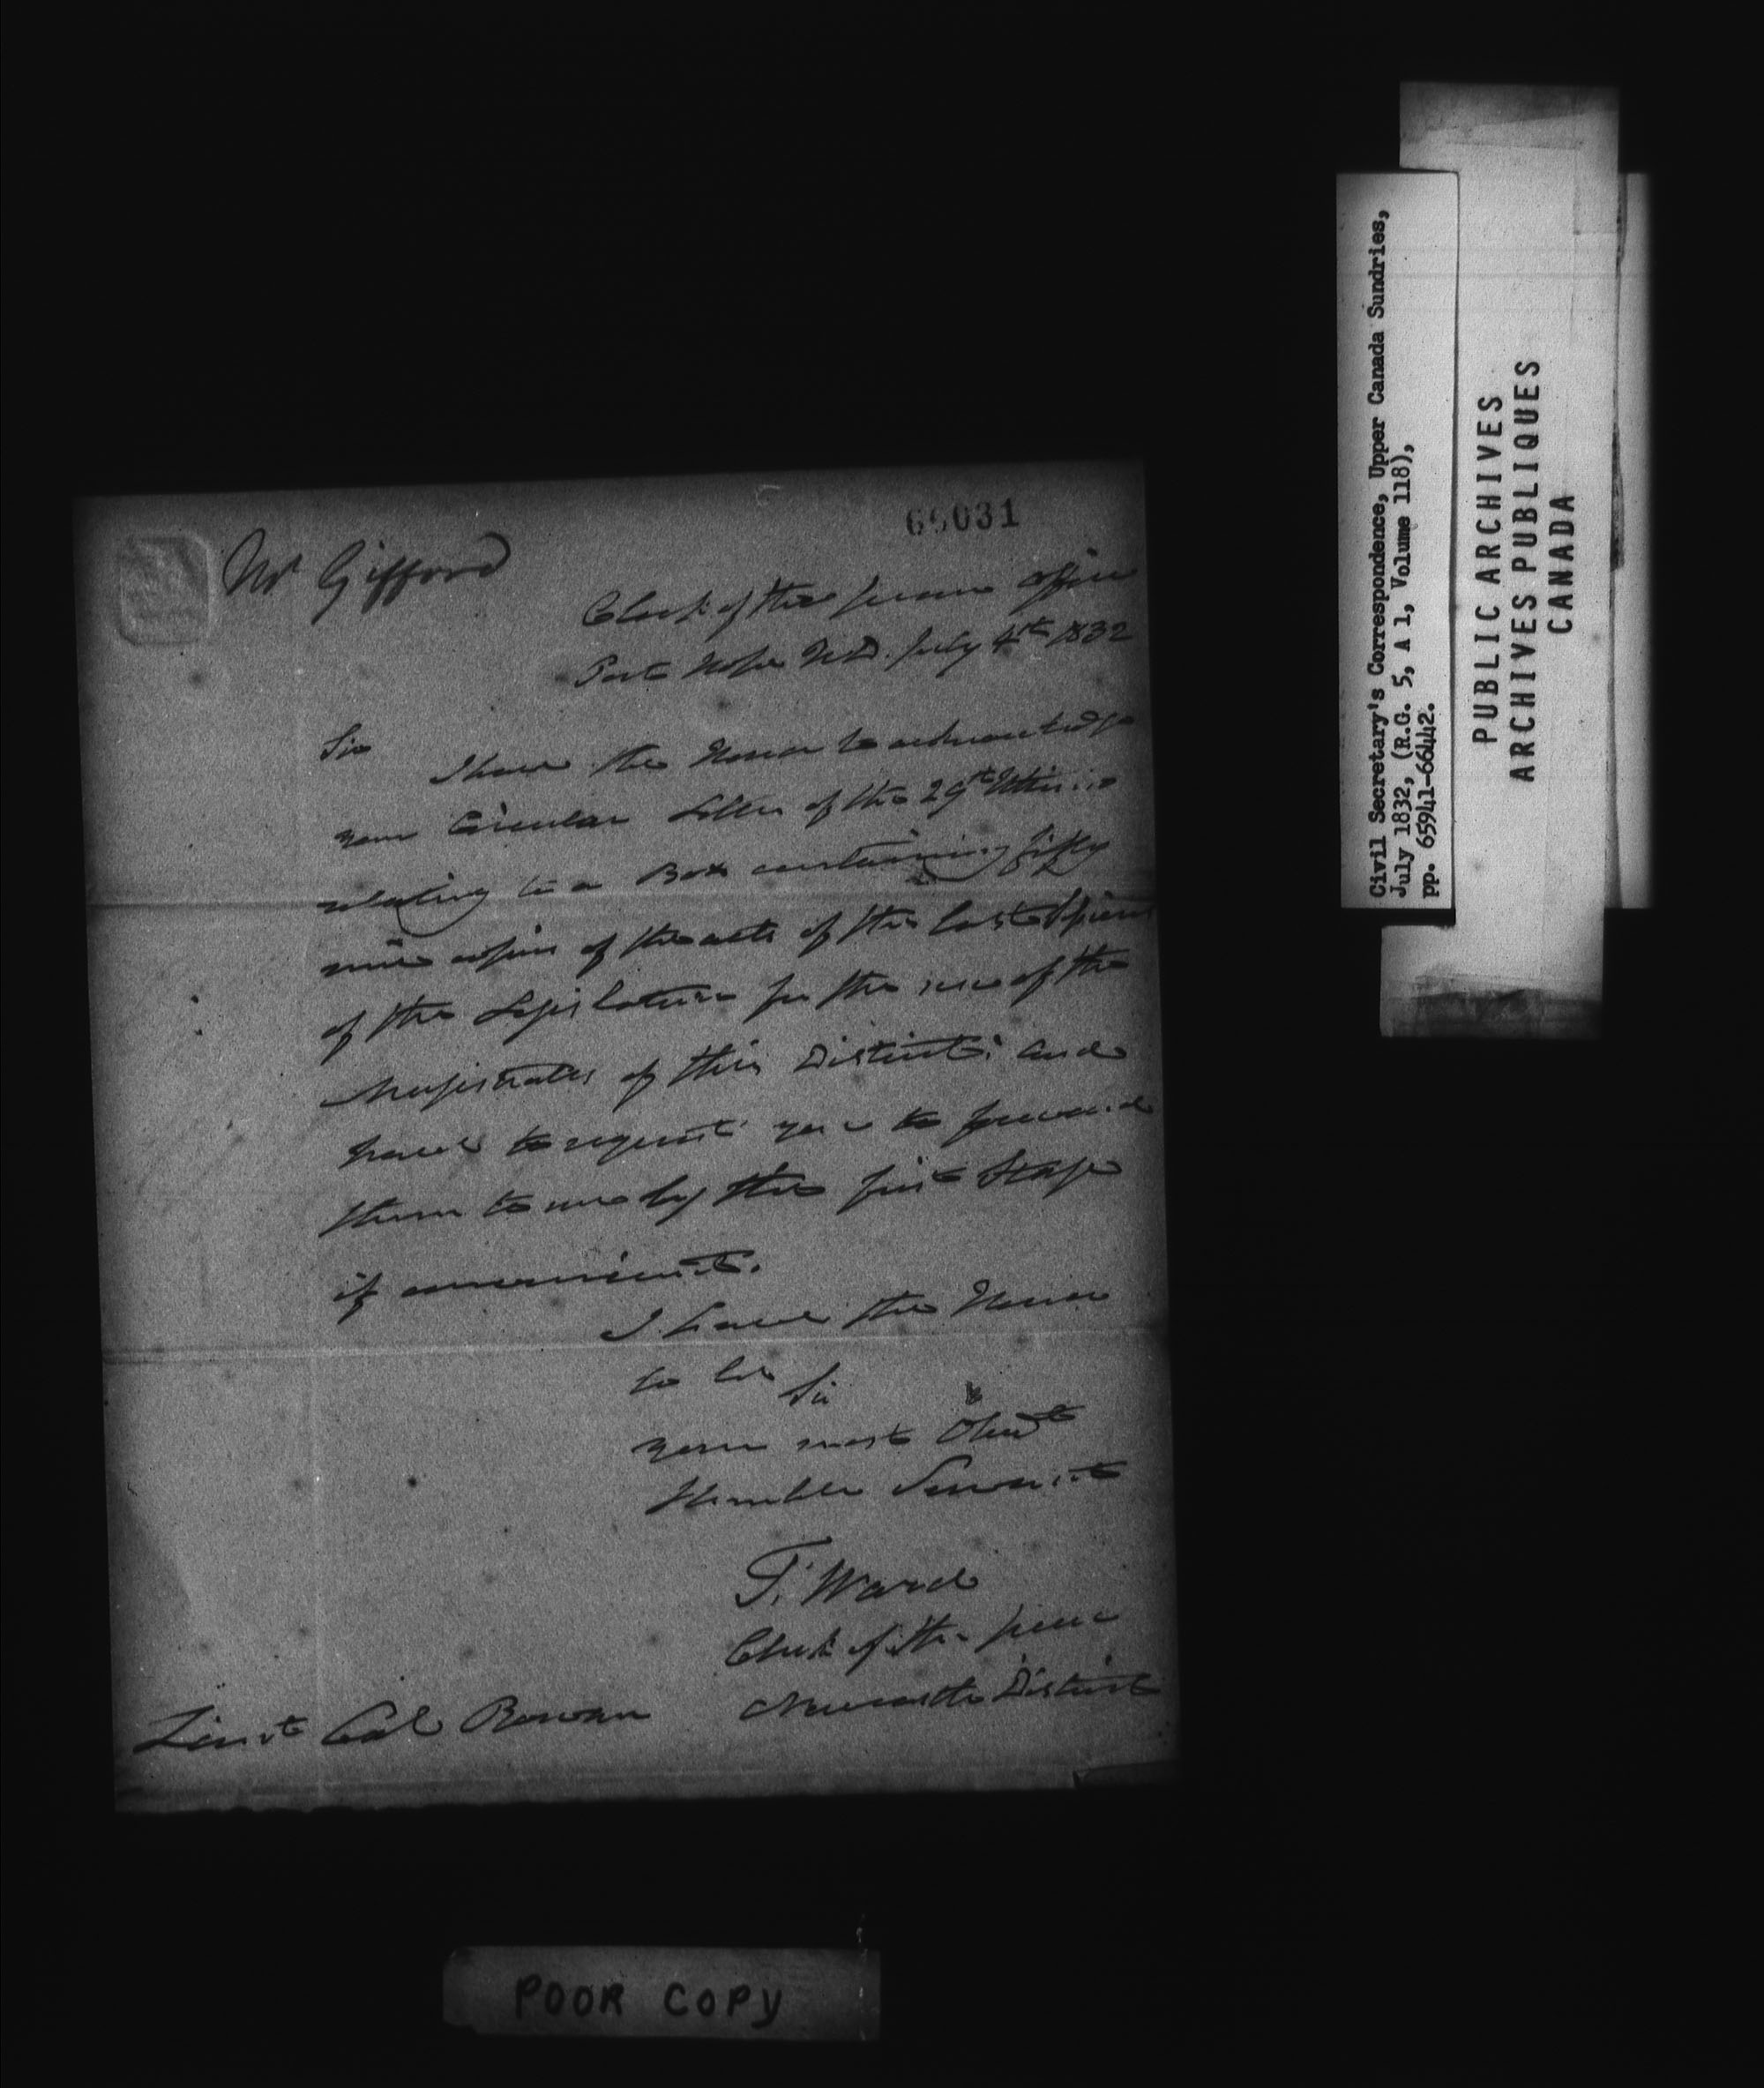 66031
Mr Gifford
Clerk of the peace office
Port Hope N.D. July 4th 1832
Sir
I have the Honor to acknowledge
your Circular Letter of the 29th Ultimo
relating to a Box containing fifty
nine copies of the acts of the last Session
of the Legislature for the use of the
Magistrates of this District: and
have to request you to forward
them to me by the first Stage
if convenient.
I have the Honor
to be Sir
your most Obedt
Humble Servant
T. Ward
Clerk of the peace
Newcastle District
Lieut Col Rowan
Civil Secretary's Correspondence, Upper Canada Sundries,
July 1832, (R.G. 5, A 1, Volume 118),
pp. 65941-66442.
PUBLIC ARCHIVES
ARCHIVES PUBLIQUES
CANADA
POOR COPY